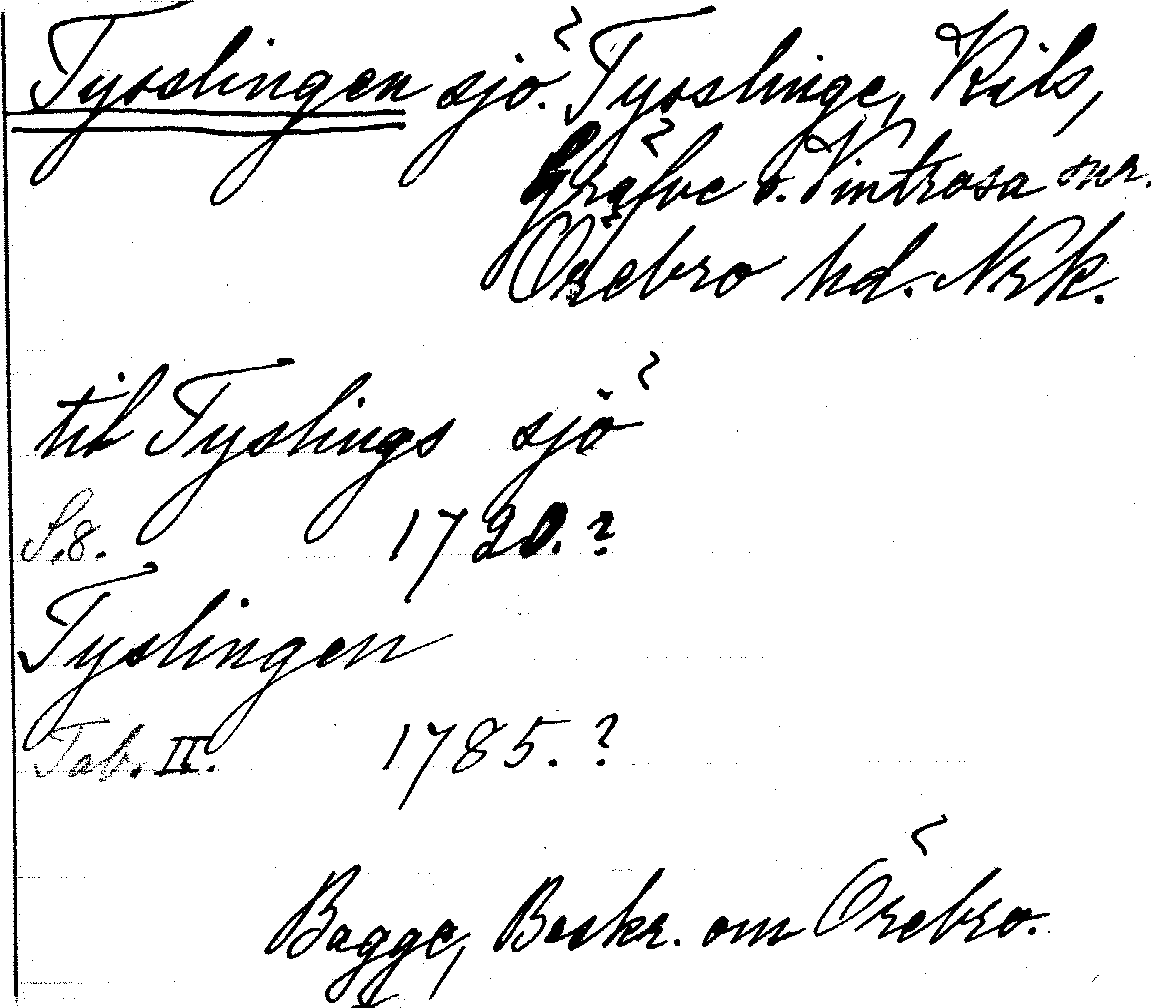 Tysslingen sjö. Tysslinge, Kils,
Gräfve o. Vintrosa snr.
Örebro hd. Nrk.
til Tyslings sjö
S. 8. 1720. ?
Tyslingen
Tab. II. 1785. ?
Bagge, Beskr. om Örebro.